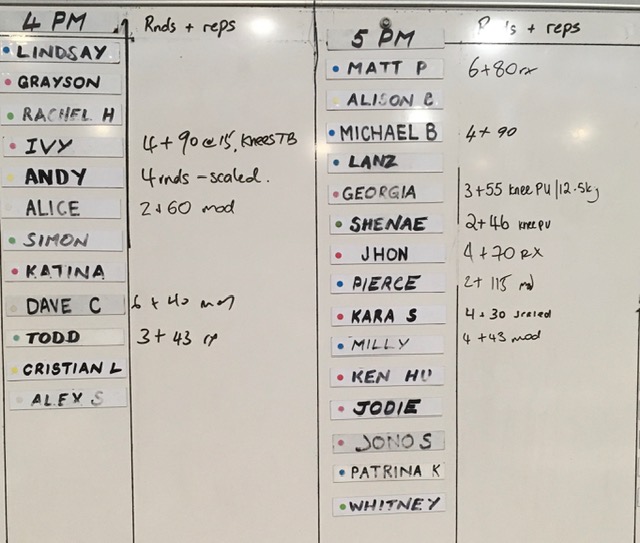 4 PM Rnds + reps
LINDSAY
GRAYSON
RACHEL H
IVY 4 + 90 @ 15, Knees TB
ANDY 4 rnds - scaled.
ALICE 2+60 mod
SIMON
KATINA
DAVE C 6 + 40
TODD 3 + 43 rx
CRISTIAN L
ALEX S
5 PM + reps
MATT P 6+80 rx
ALISON
MICHAEL B 4 + 90
LANZ
GEORGIA 3+55 knee PU | 12.5kg
SHENAE 2+46 knee PU
JHON 4 +70 RX
PIERCE 2+ 115
KARA S 4+30 scaled
MILLY 4 +43 mod
KEN HU
JODIE
JONO S
PATRINA K
WHITNEY